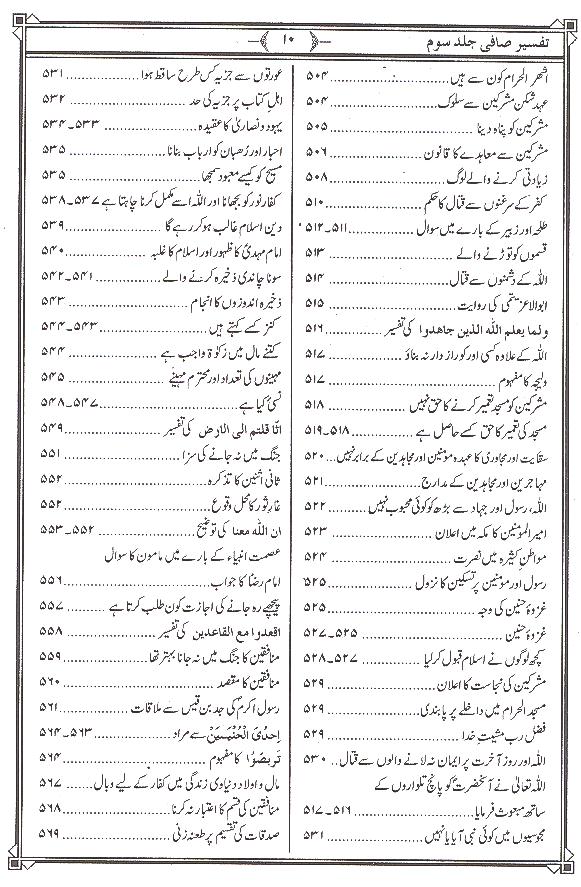 تفسیر صافی جلد سوم
۱۰
اشھر الحرام کون سے ہیں ۵۰۴
عہد شکن مشرکین سے سلوک ۵۰۴
مشرکین کو پناہ دینا ۵۰۵
مشرکین سے معاہدے کا قانون ۵۰۶
زیادتی کرنے والے لوگ ۵۰۸
کفر کے سرغنوں سے قتال کا حکم ۵۱۰
طلحہ اور زبیر کے بارے میں سوال ۵۱۱۔۵۱۲
قسموں کو توڑنے والے ۵۱۳
اللہ کے دشمنوں سے قتال ۵۱۴
ابوالاعز تیمی کی روایت ۵۱۵
ولما یعلم اللہ الذین جاھدوا کی تفسیر ۵۱۶
اللہ کے علاوہ کسی اور کو رازدار نہ بناؤ ۵۱۷
ولیجہ کا مفہوم ۵۱۷
مشرکین کو مسجد تعمیر کرنے کا حق نہیں ۵۱۸
مسجد کی تعمیر کا حق کسے حاصل ہے ۵۱۸۔۵۱۹
سقایت اور مجاوری کا عہدہ مؤمنین اور مجاہدین کے برابر نہیں ۵۲۰
مہاجرین اور مجاہدین کے مدارج ۵۲۱
اللہ، رسول اور جہاد سے بڑھ کو کوئی محبوب نہیں ۵۲۲
امیر المؤمنین کا مکہ میں اعلان ۵۲۳
مواطن کثیرہ میں نصرت ۵۲۴
رسول اور مومنین پر تسکین کا نزول ۵۲۵
غزوۂ حنین کی وجہ ۵۲۵
غزوۂ حنین ۵۲۵۔۵۲۷
کچھ لوگوں نے اسلام قبول کر لیا ۵۲۷۔۵۲۸
مشرکین کی نجاست کا اعلان ۵۲۹
مسجد الحرام میں داخلے پر پابندی ۵۲۹
فضل رب مشیتِ خدا ۵۲۹
اللہ اور روز آخرت پر ایمان نہ لانے والوں سے قتال ۵۳۰
اللہ تعالیٰ نے آنحضرتؐ کو پانچ تلواروں کے
ساتھ مبعوث فرمایا ۵۱۶۔۵۱۷
مجوسیوں میں کوئی نبی آیا یا نہیں ۵۳۱
عورتوں سے جزیہ کس طرح ساقط ہوا ۵۳۱
اہل کتاب پر جزیہ کی حد ۵۳۲
یہود و نصاریٰ کا عقیدہ ۵۳۳۔۵۳۴
احبار اور رُھبان کو ارباب بنانا ۵۳۵
مسیح کو کیسے معبود سمجھا ۵۳۵
کفار نور کو بجھانا اور اللہ اسے مکمل کرنا چاہتا ہے ۵۳۷۔۵۳۸
دین اسلام غالب ہو کر رہے گا ۵۳۹
امام مہدیؑ کا ظہور اور اسلام کا غلبہ ۵۴۰
سونا چاندی ذخیرہ کرنے والے ۵۴۱۔۵۴۲
ذخیرہ اندوزوں کا انجام ۵۴۳
کنز کسے کہتے ہیں ۵۴۳۔۵۴۴
کتنے مال میں زکوٰۃ واجب ہے ۵۴۴
مہینوں کی تعداد اور محترم مہینے ۵۴۵
نسئ کیا ہے ۵۴۷۔۵۴۸
اثّا قلتم الی الارض کی تفسیر ۵۴۹
جنگ میں نہ جانے کی سزا ۵۵۱
ثانی اثنین کا تذکرہ ۵۵۲
غارِ ثور کا محل وقوع ۵۵۲
ان اللہ معنا کی توضیح ۵۵۲۔۵۵۳
عصمت انبیاء کے بارے میں مامون کا سوال
امام رضاؑ کا جواب ۵۵۶
پیچھے رہ جانے کی اجازت کون طلب کرتا ہے ۵۵۷
اقعدوا مع القاعدین کی تفسیر ۵۵۸
منافقین کا جنگ میں نہ جانا بہتر تھا ۵۵۹
منافقین کا مقصد ۵۶۰
رسول اکرمؐ کی جد بن قیس سے ملاقات ۵۶۱
اِحدَی الْحُسْنَیَیْنِ سے مراد ۵۶۳۔۵۶۴
تَربصُوْا کا مفہوم ۵۶۴
مال و اولاد دنیاوی زندگی میں کفار کے لیے وبال ۵۶۷
منافقین کی قسم کا اعتبار نہ کرنا ۵۶۸
صدقات کی تقسیم پر طعنہ زنی ۵۶۹